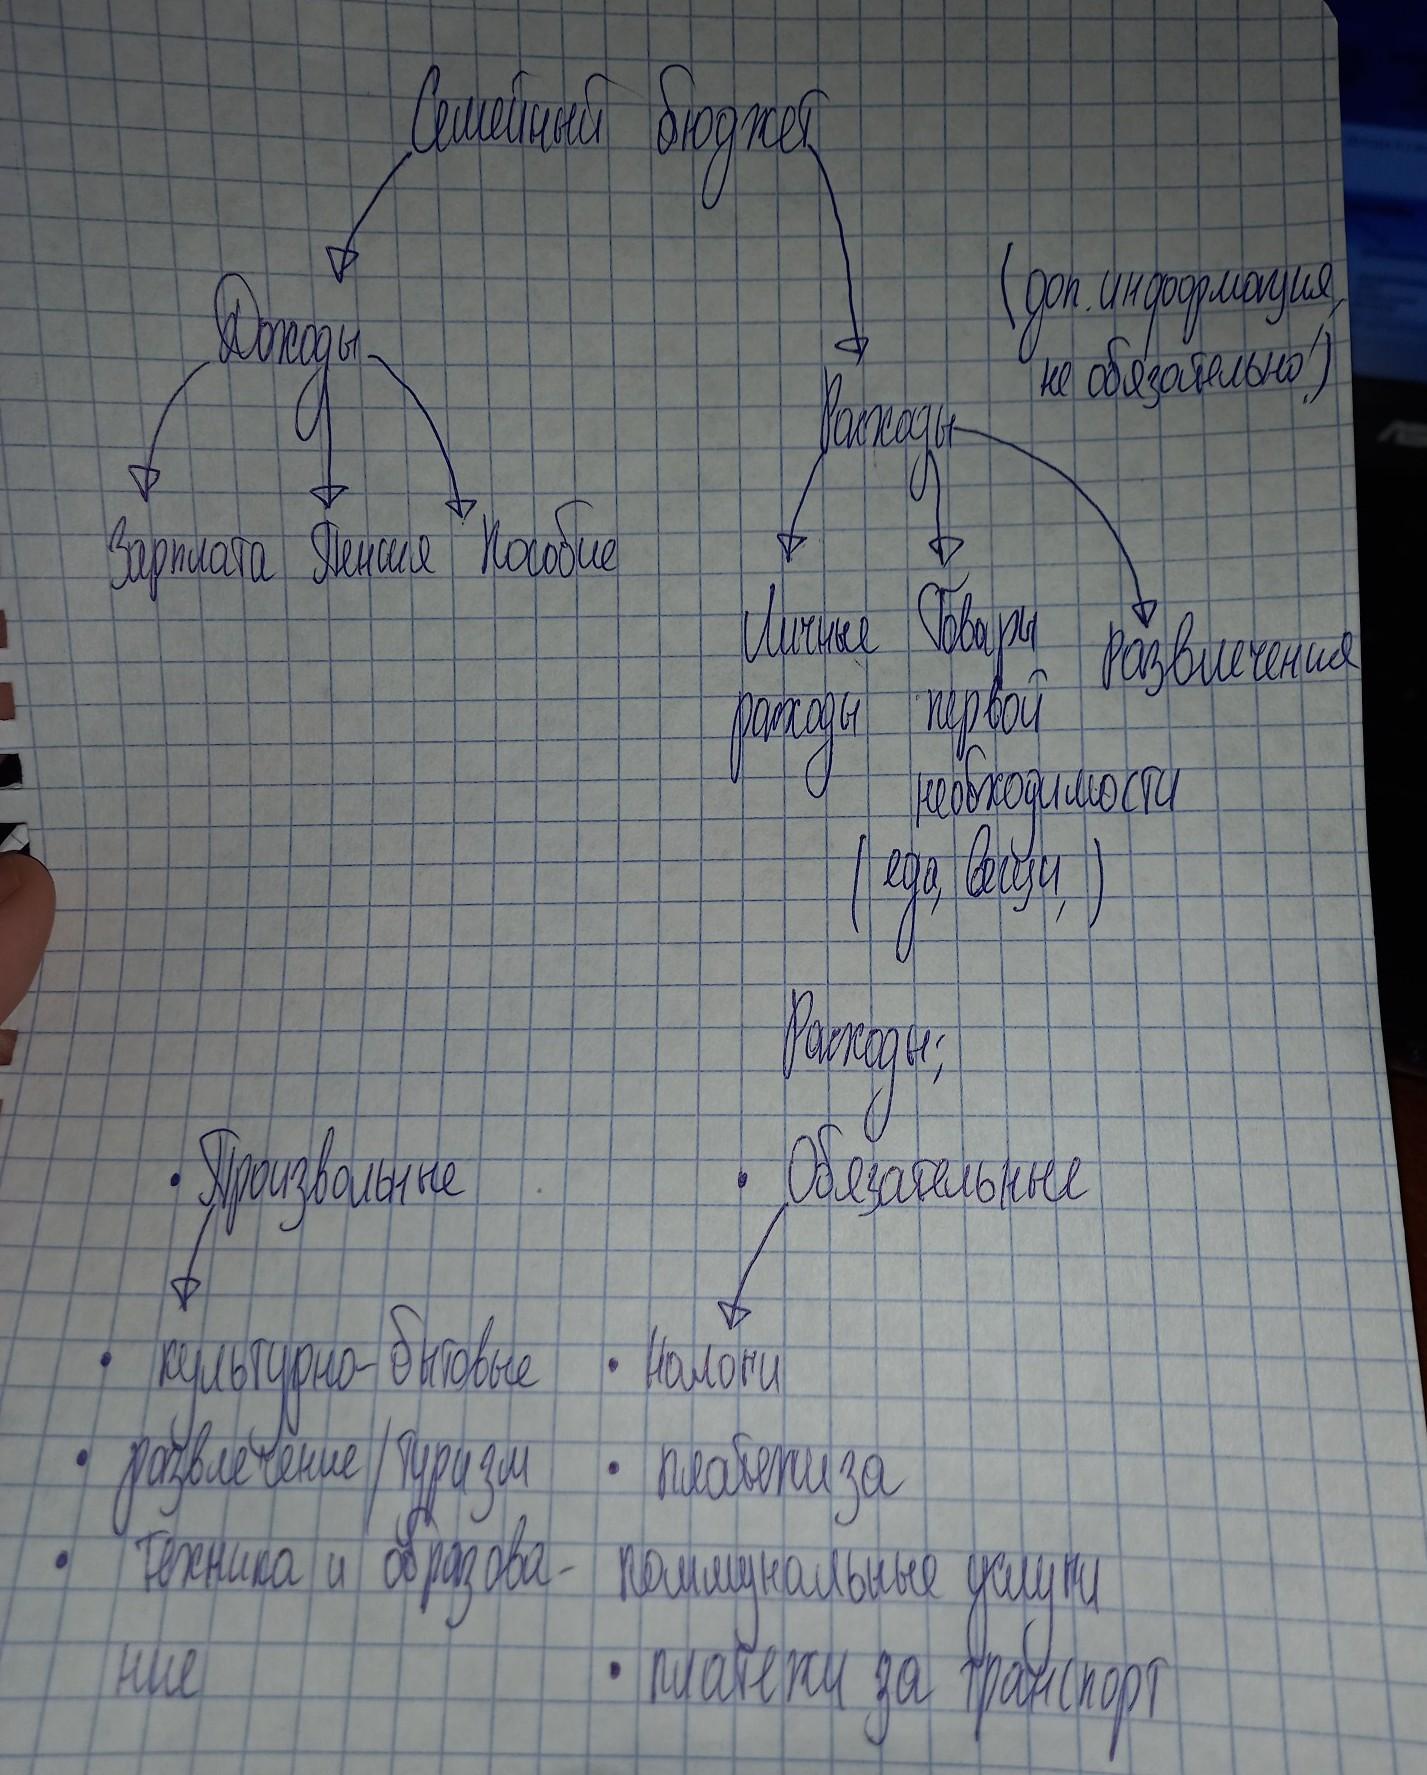 Семейный бюджет
(доп. информация,
не обязательно!)
Доходы
Расходы
Зарплата Пенсия Пособие
Личные Товары Развлечения
расходы первой
необходимости
(еда, вещи, )
Расходы;
• Произвольные • Обязательные
• культурно-бытовые • налоги
• развлечение/туризм • платежи за
• техника и образова- коммунальные услуги
ние • платежи за транспорт